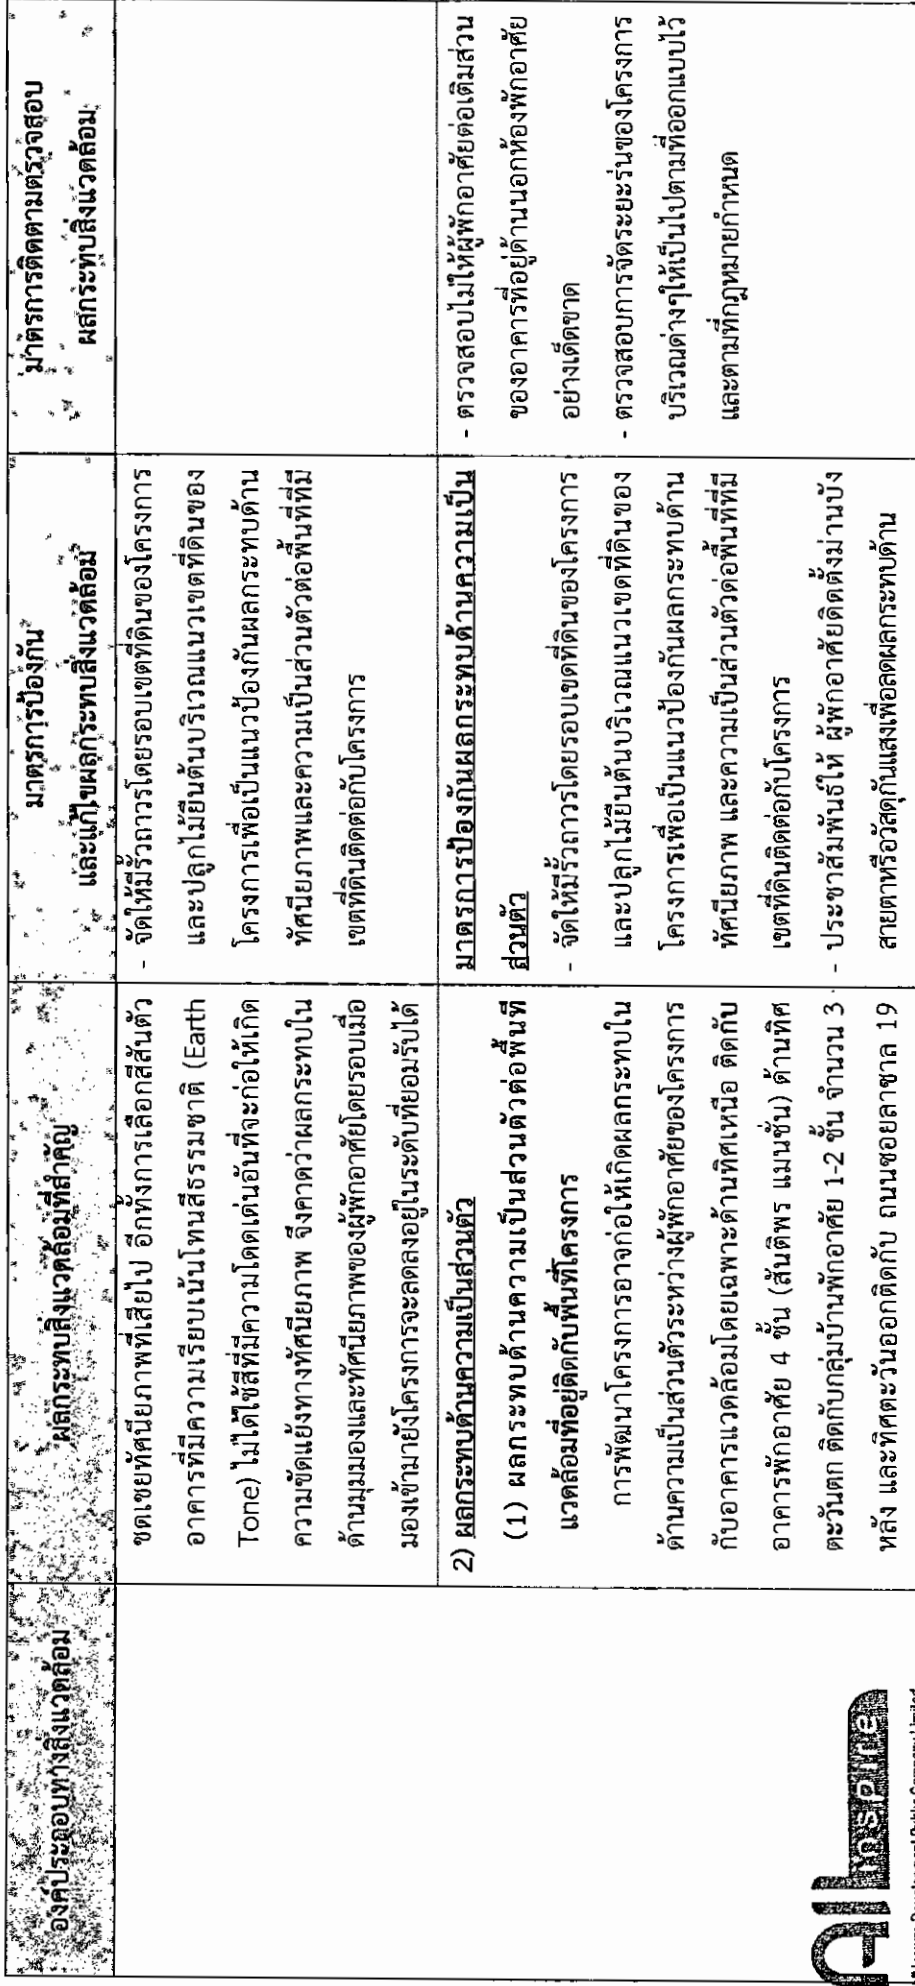 องค์ประกอบทางสิ่งแวดล้อม
ผลกระทบสิ่งแวดล้อมที่สำคัญ
มาตรการป้องกัน
และแก้ไขผลกระทบสิ่งแวดล้อม
มาตรการติดตามตรวจสอบ
ผลกระทบสิ่งแวดล้อม
ชดเชยทัศนียภาพที่เสียไป อีกทั้งการเลือกสีสันตัว
อาคารที่มีความเรียบเน้นโทนสีธรรมชาติ (Earth
Tone) ไม่ได้ใช้สีที่มีความโดดเด่นอันที่จะก่อให้เกิด
ความขัดแย้งทางทัศนียภาพ จึงคาดว่าผลกระทบใน
ด้านมุมมองและทัศนียภาพของผู้พักอาศัยโดยรอบเมื่อ
มองเข้ามายังโครงการจะลดลงอยู่ในระดับที่ยอมรับได้
- จัดให้มีรั้วถาวรโดยรอบเขตที่ดินของโครงการ
และปลูกไม้ยืนต้นบริเวณแนวเขตที่ดินของ
โครงการเพื่อเป็นแนวป้องกันผลกระทบด้าน
ทัศนียภาพและความเป็นส่วนตัวต่อพื้นที่ที่มี
เขตที่ดินติดต่อกับโครงการ
2) ผลกระทบด้านความเป็นส่วนตัว
(1) ผลกระทบด้านความเป็นส่วนตัวต่อพื้นที่
แวดล้อมที่อยู่ติดกับพื้นที่โครงการ
การพัฒนาโครงการอาจก่อให้เกิดผลกระทบใน
ด้านความเป็นส่วนตัวระหว่างผู้พักอาศัยของโครงการ
กับอาคารแวดล้อมโดยเฉพาะด้านทิศเหนือ ติดกับ
อาคารพักอาศัย 4 ชั้น (สันติพร แมนชั่น) ด้านทิศ
ตะวันตก ติดกับกลุ่มบ้านพักอาศัย 1-2 ชั้น จำนวน 3
หลัง และทิศตะวันออกติดกับ ถนนซอยลาซาล 19
มาตรการป้องกันผลกระทบด้านความเป็น
ส่วนตัว
- จัดให้มีรั้วถาวรโดยรอบเขตที่ดินของโครงการ
และปลูกไม้ยืนต้นบริเวณแนวเขตที่ดินของ
โครงการเพื่อเป็นแนวป้องกันผลกระทบด้าน
ทัศนียภาพ และความเป็นส่วนตัวต่อพื้นที่ที่มี
เขตที่ดินติดต่อกับโครงการ
- ประชาสัมพันธ์ให้ ผู้พักอาศัยติดตั้งม่านบัง
สายตาหรือวัสดุกันแสงเพื่อลดผลกระทบด้าน
- ตรวจสอบไม่ให้ผู้พักอาศัยต่อเติมส่วน
ของอาคารที่อยู่ด้านนอกห้องพักอาศัย
อย่างเด็ดขาด
- ตรวจสอบการจัดระยะร่นของโครงการ
บริเวณต่างๆให้เป็นไปตามที่ออกแบบไว้
และตามที่กฎหมายกำหนด
All Inspire